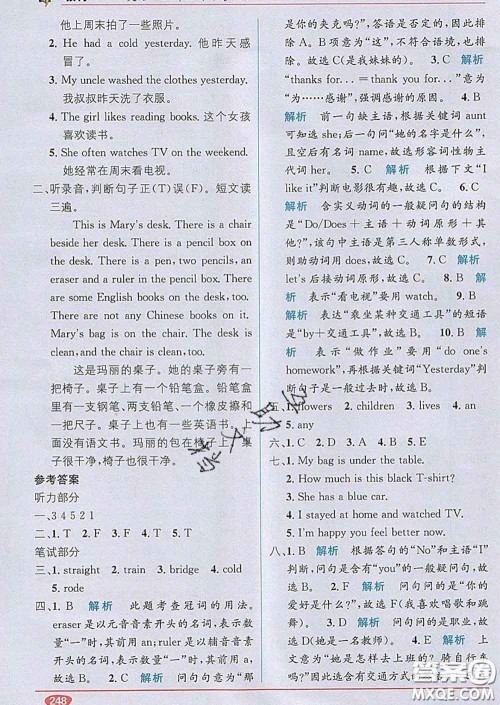 他上周末拍了一些照片。
2. He had a cold yesterday. 他昨天感
冒了。
3. My uncle washed the clothes yesterday.
我叔叔昨天洗了衣服。
4. The girl likes reading books. 这个女孩
喜欢读书。
5. She often watches TV on the weekend.
她经常在周末看电视。
二、听录音,判断句子正(T)误(F)。短文读
三遍。
This is Mary's desk. There is a chair
beside her desk. There is a pencil box on
the desk. There is a pen, two pencils, an
eraser and a ruler in the pencil box. There
are some English books on the desk, too.
There are not any Chinese books on it.
Mary's bag is on the chair. The desk is
clean, and the chair is clean, too.
这是玛丽的桌子。她的桌子旁有一
把椅子。桌子上有一个铅笔盒。铅笔盒
里有一支钢笔、两支铅笔、一个橡皮擦和
一把尺子。桌子上也有一些英语书。上
面没有语文书。玛丽的包在椅子上。桌
子很干净,椅子也很干净。
参考答案
听力部分
一、3 4 5 2 1
二、1. T 2. F 3. F 4. T 5. T
笔试部分
三、1. straight 2. train 3. bridge 4. cold
5. rode
四、1. B 解析 此题考查冠词的用法。
eraser 是以元音音素开头的名词,表示数
量“一”时,其前用 an;ruler 是以辅音音素
开头的名词,表示数量“一”时,其前用 a。
故选 B。 2. C 解析 问句句意为“那
248
是你的夹克吗?”,答语是否定的,因此可
排除 A。B 项意为“这”,不符合语境,也
排除。故选 C(是我妹妹的)。 3. C 解析
“thanks for...=thank you for...”意为
“为……感谢”,强调感谢的原因。 4. B
解析 前一句缺主语,根据关键词 aunt
可知选 she;后一句问“她的名字是什么”,
且空后有名词 name,故选形容词性物主
代词 her。 5. C 解析 根据下文“I
like it”判断电影很有趣,故选 C。 6. C
解析 含实义动词的一般疑问句的结构
是“Do/Does+主语+动词原形+其
他”,该句中主语是第三人称单数形式,则
助动词用 does,故选 C。 7. A 解析
let's 后接动词原形,故选 A。 8. B
解析 表示“看电视”要用 watch。 9. B
解析 表示“乘坐某种交通工具”的短语
是“by+交通工具”,故选 B。 10. B
解析 表示“做作业”要用“do one's
homework”,再根据关键词“Yesterday”判
断句子是一般过去时,故选 B。
五、1. flowers 2. children 3. lives 4. an
5. any
七、1. My bag is under the table.
2. How much is this black T-shirt?
3. She has a blue car.
4. I stayed at home and watched TV.
5. I'm happy you feel better now.
八、1. B 解析 根据答句的“No”和主语“I”
判断,问句是含有“you”的一般疑问句,故
选 B。 2. F 解析 问句问的是“你的
爱好是什么”,故选 F(我喜欢唱歌和跳
舞)。 3. D 解析 问句问的是职业,故
选 D(她是一名教师)。 4. E 解析 上
文意为“她是怎样去上班的?骑自行车
吗?”因此选含有交通方式
答案圈
MXQE.COM